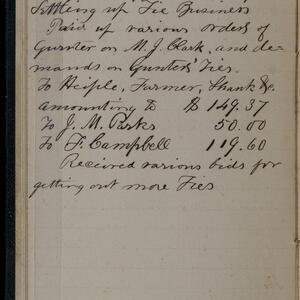 Settling up Tie Business
Paid up various orders of
Gunter on M. J. Clark, and de-
mands on Gunters' Ties.
To Heiple, Farmer, Shank &c.
amounting to $ 149.37
To J. M. Parks 50.00
To F. Campbell 119.60
Received various bids for
getting out more Ties